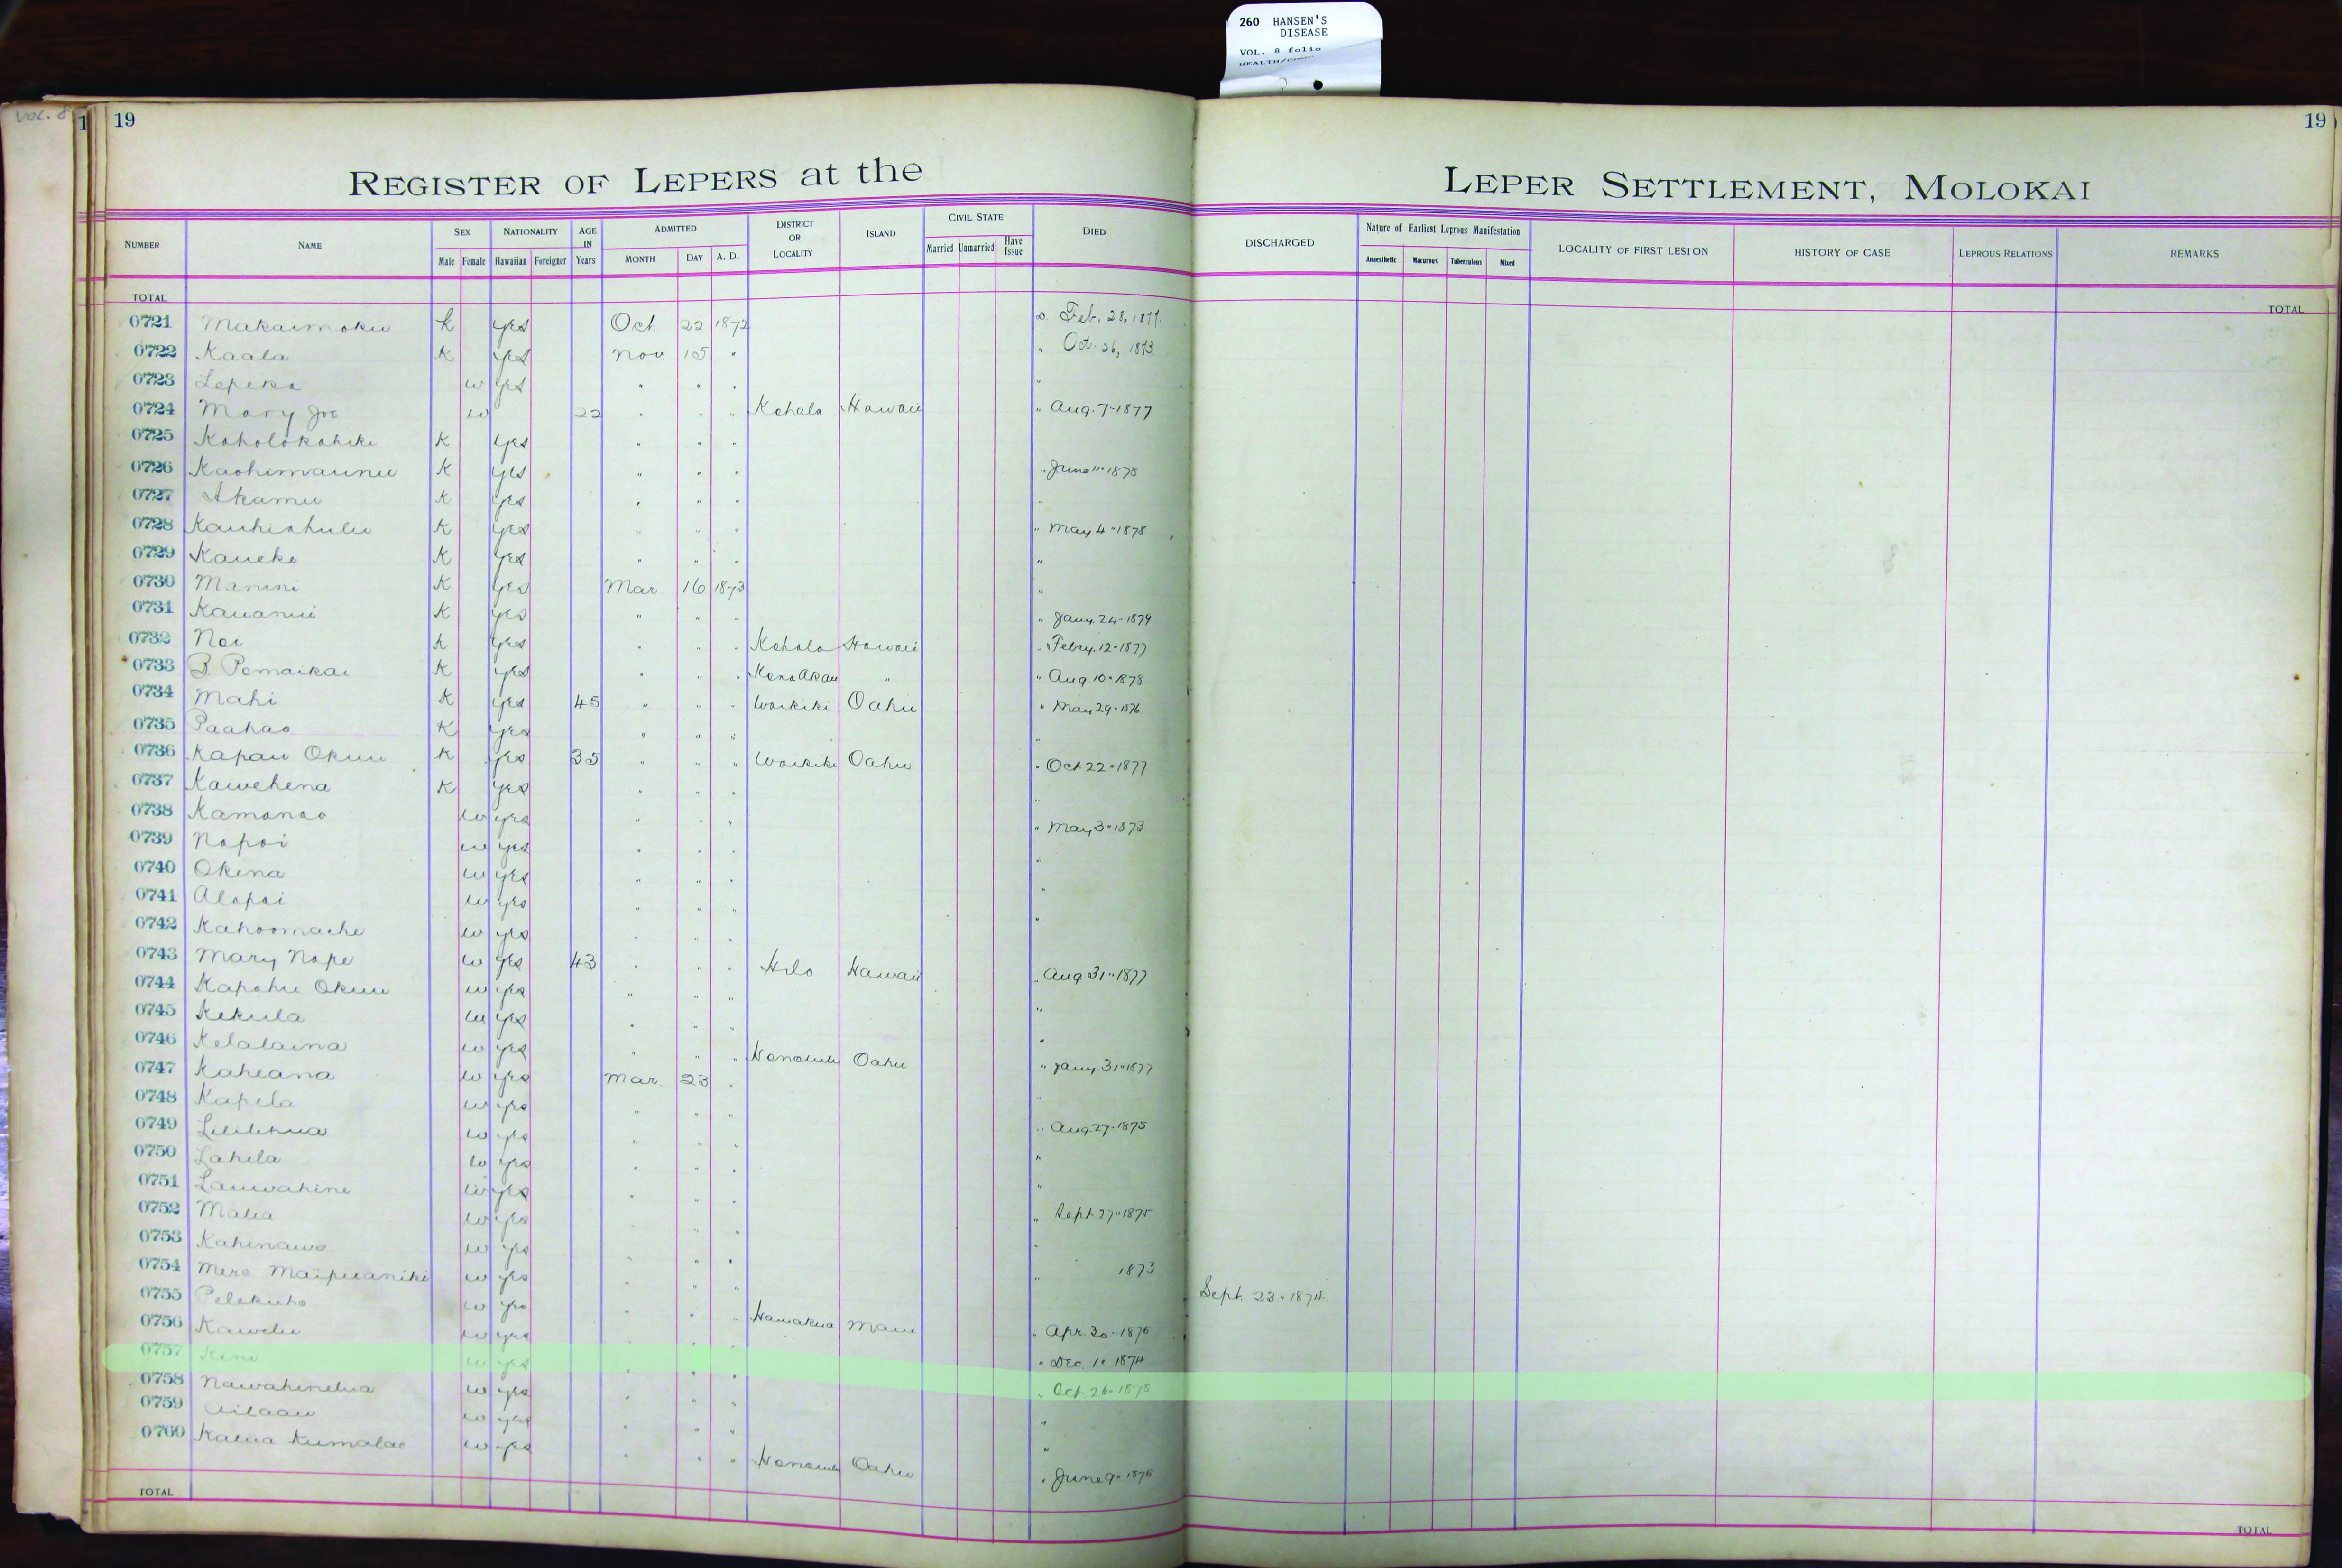 260 HANSEN'S
DISEASE
VOL. 8 folio
Vol. 8
1 19 19
REGISTER OF LEPERS at the LEPER SETTLEMENT, MOLOKAI
NUMBER NAME SEX Male Female NATIONALITY Hawaiian Foreigner AGE IN Years ADMITTED MONTH DAY A. D. DISTRICT OR LOCALITY ISLAND CIVIL STATE Married Unmarried Have Issue DIED DISCHARGED Nature of Earliest Leprous Manifestation Anaesthetic Macurous Tuberculous Mixed LOCALITY OF FIRST LESION HISTORY OF CASE LEPROUS RELATIONS REMARKS
TOTAL TOTAL
0721 Makaimoku K yes Oct. 22 1872 Feb. 28, 1877.
0722 Kaala K yes Nov 15 " " Oct. 26, 1873.
0723 Lepeka w yes " " " "
0724 Mary Joe w 22 " " " Kohala Hawaii " Aug. 7-1877
0725 Koholokahiki K yes " " "
0726 Kaohimaunu K yes " " " " June 11-1878
0727 Akamu K yes " " " "
0728 Kauhiahulu K yes " " " " May 4-1878
0729 Kaueke K yes " " " "
0730 Manini K yes Mar 16 1873 "
0731 Kauanui K yes " " " " Jany. 24-1879
0732 Noi K yes " " " Kohala Hawaii " Febry. 12-1877
0733 B Pomaikai K yes " " " Kona Akau " " Aug 10-1878
0734 Mahi K yes 45 " " " Waikiki Oahu " May 29-1876
0735 Paahao K yes " " " "
0736 Kapau Okuu K yes 35 " " " Waikiki Oahu " Oct 22-1877
0737 Kawehena K yes " " " "
0738 Kamanao w yes " " " " May 3-1873
0739 Napoi w yes " " " "
0740 Okina w yes " " " "
0741 Alapai w yes " " " "
0742 Kahoomache w yes " "
0743 Mary Nape w yes 43 " " " Hilo Hawaii " Aug 31-1877
0744 Kapahu Okuu w yes " " " "
0745 Kekula w yes " " " "
0746 Kelalaina w yes " " " Honolulu Oahu " Jany. 31-1877
0747 Kaheana w yes Mar. 23 " "
0748 Kapela w yes " " " " Aug. 27-1875
0749 Lililehua w yes " " " "
0750 Lahela w yes " " " "
0751 Lauwahine w yes " " " Sept. 27-1875
0752 Malia w yes " " " "
0753 Kahinawe w yes " " " " 1873
0754 Mere Maipuaniki w yes " " " Sept. 23-1874
0755 Pelekuho w yes " " " Hamakua Maui " Apr. 30-1876
0756 Kawelu w yes " " " Dec. 10 1874
0757 Kini w yes " " " " Oct. 26-1878
0758 Nawahinelua w yes " " " "
0759 Ailaau w yes " " " "
0760 Kalua Kumalae w yes " " " Honolulu Oahu " June 9-1876
TOTAL TOTAL